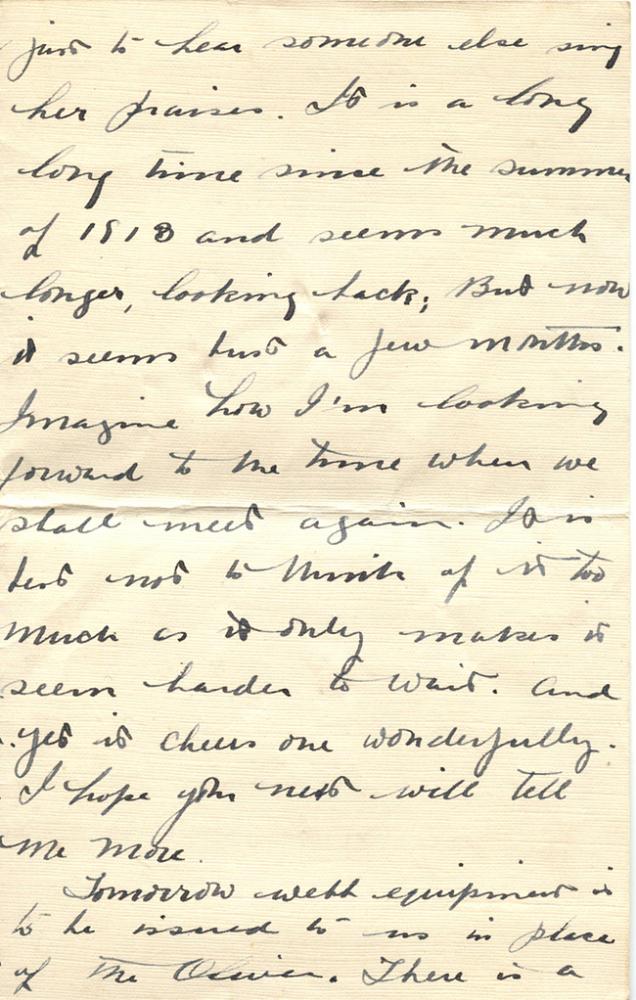 just to hear someone else sing
her praises. It is a long
long time since the summer
of 1913 and seems much
longer, looking back; But now
it seems but a few months.
Imagine how I'm looking
forward to the time when we
shall meet again. It is
best not to think of it too
much as it only makes it
seem harder to wait. And
yet it cheers one wonderfully.
I hope your next will tell
me more.
Tomorrow webb equipment is
to be issued to us in place
of the Oliver. There is a